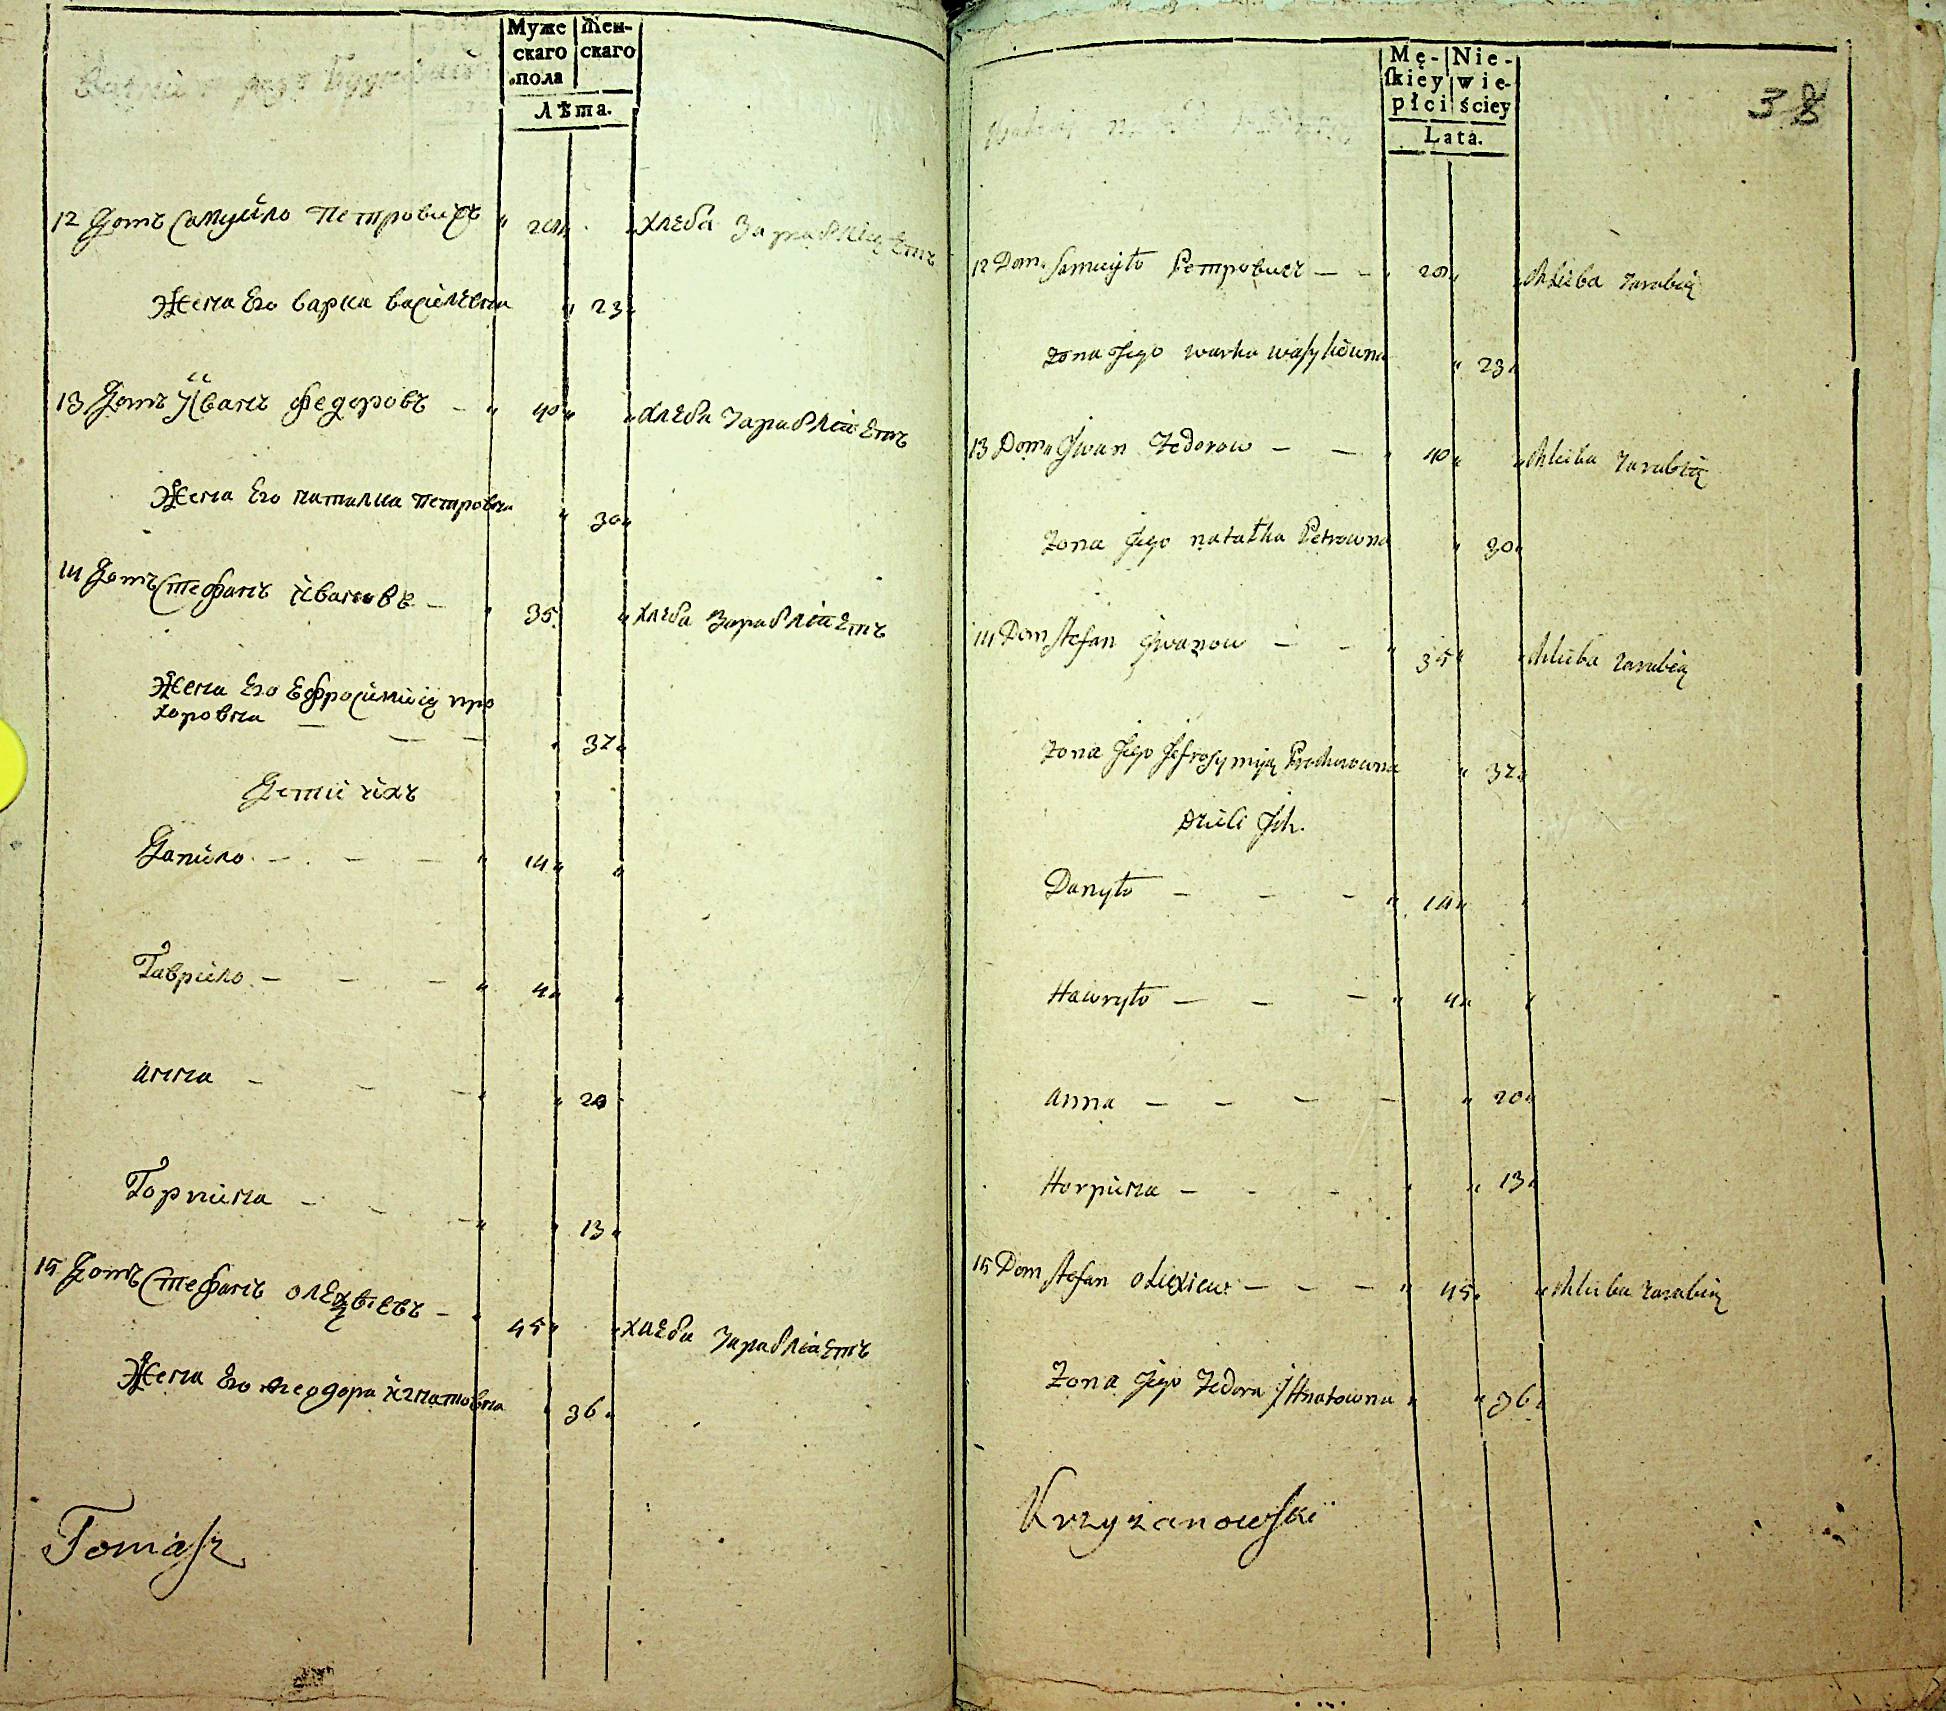 Муже Жен-
скаго скаго
пола
Лѣта.
12 Домъ Самуйло Петровичъ 20 хлеба Зараблiаетъ
Жена Его варка василевна 23
13 Домъ Иванъ Федоровъ 40 хлеба Зараблiаетъ
Жена Его наталка Петровна 30
14 Домъ Стефанъ ивановъ 35 хлеба Зараблiаетъ
Жена Его Ефросинию про
хоровна
37
Дети ихъ
Данило 14
Гаврило 4
анна 20
Горпина 13
15 Домъ Стефанъ олеѯѣевъ 45 хлеба Зараблiаетъ
Жена Его Ѳеодора игнатовна 36
Tomasz
Mę- Nie-
ſkiey wie-
płci ściey
Lata.
38
12 Dom Samuyło Petrowicz 20 chleba zarabia
Zona Jego warka wasylówna 23
13 Dom Jwan Fedorow 40 chleba zarabia
Zona Jego natałka Petrowna 30
14 Dom Stefan Jwanow 35 chleba zarabia
Zona Jego Jefrosymija Prochorowna 37
Dzieli Jch.
Danyło 14
Hawryło 4
Anna 20
Horpina 13
15 Dom Stefan olexiew 45 chleba zarabia
Zona Jego Fedora Jhnatowna 36
Krzyżanowski